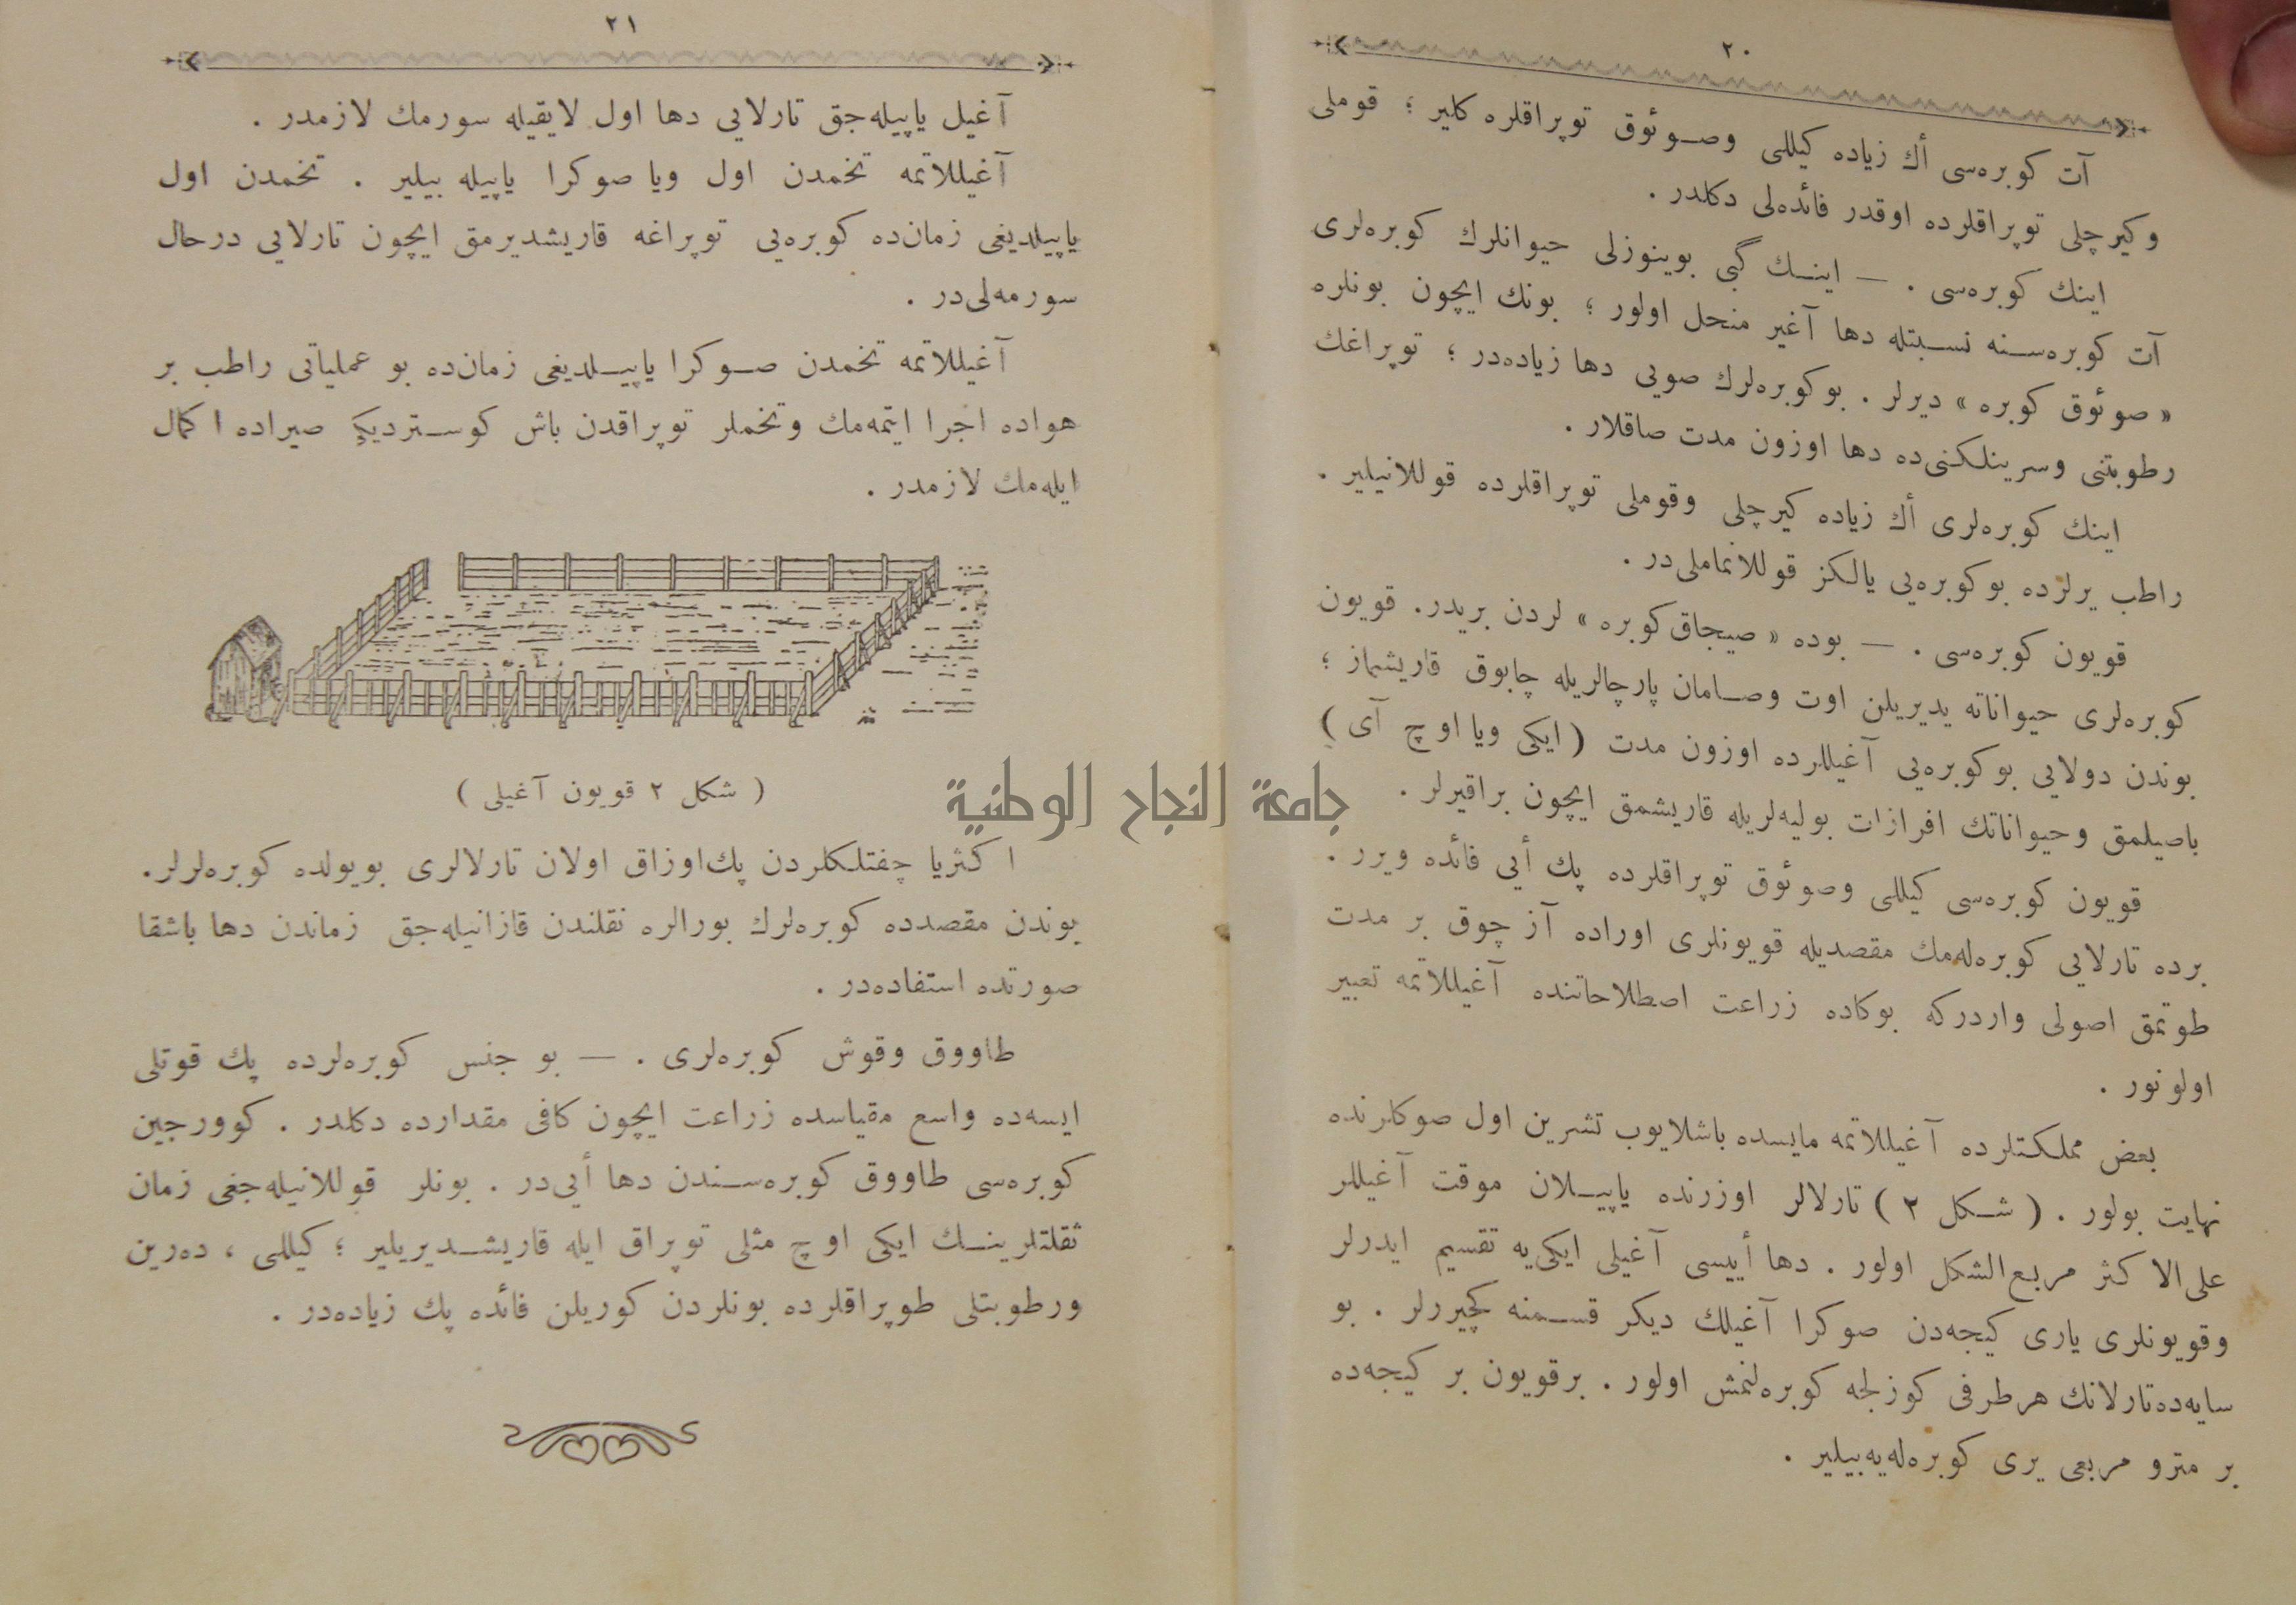 ٢٠
آت كوبره‌سى أك زياده كيللى وصوئوق توپراقلره كلير ؛ قوملى
وكيرچلى توپراقلرده اوقدر فائده‌لى دكلدر .
اينك كوبره‌سى . — اينك گبى بوينوزلى حيوانلرك كوبره‌لرى
آت كوبره‌سنه نسبتله دها آغير منحل اولور ؛ بونك ايچون بونلره
« صوئوق كوبره » ديرلر . بوكوبره‌لرك صويى دها زياده‌در ؛ توپراغك
رطوبتنى وسرينلكنى‌ده دها اوزون مدت صاقلار .
اينك كوبره‌لرى أك زياده كيرچلى وقوملى توپراقلرده قوللانيلير .
راطب يرلرده بوكوبره‌يى يالكز قوللانماملى‌در .
قويون كوبره‌سى . — بوده « صيجاق‌كوبره » لردن بريدر. قويون
كوبره‌لرى حيواناته يديريلن اوت وصامان پارچالريله چابوق قاريشماز ؛
بوندن دولايى بوكوبره‌يى آغيللرده اوزون مدت ( ايكى ويا اوچ آى )
باصيلمق وحيواناتك افرازات بوليه‌لريله قاريشمق ايچون براقيرلر .
قويون كوبره‌سى كيللى وصوئوق توپراقلرده پك أيى فائده ويرر .
برده تارلايى كوبره‌له‌مك مقصديله قويونلرى اوراده آز چوق بر مدت
طوتمق اصولى واردركه بوكاده زراعت اصطلاحاتنده آغيللاتمه تعبير
اولونور .
بعض مملكتلرده آغيللاتمه مايسده باشلايوب تشرين اول صوكلرنده
نهايت بولور . ( شكل ٢ ) تارلالر اوزرنده ياپيلان موقت آغيللر
على‌الاكثر مربع‌الشكل اولور . دها أييسى آغيلى ايكى‌يه تقسيم ايدرلر
وقويونلرى يارى كيجه‌دن صوكرا آغيلك ديكر قسمنه كچيررلر . بو
سايه‌ده‌تارلانك هرطرفى كوزلجه كوبره‌لنمش اولور . برقويون بر كيجه‌ده
بر مترو مربعى يرى كوبره‌له‌يه‌بيلير .
٢١
آغيل ياپيله‌جق تارلايى دها اول لايقيله سورمك لازمدر .
آغيللاتمه تخمدن اول ويا صوكرا ياپيله بيلير . تخمدن اول
ياپيلديغى زمان‌ده كوبره‌يى توپراغه قاريشديرمق ايچون تارلايى درحال
سورمه‌لى‌در .
آغيللاتمه تخمدن صوكرا ياپيلديغى زمان‌ده بو عملياتى راطب بر
هواده اجرا ايتمه‌مك وتخملر توپراقدن باش كوستردیكى صيراده اكمال
ايله‌مك لازمدر .
( شكل ٢ قويون آغيلى )
اكثريا چفتلكلردن پك‌اوزاق اولان تارلالرى بويولده كوبره‌لرلر.
بوندن مقصدده كوبره‌لرك بورالره نقلندن قازانيله‌جق زماندن دها باشقا
صورتده استفاده‌در .
طاووق وقوش كوبره‌لرى . — بو جنس كوبره‌لرده پك قوتلى
ايسه‌ده واسع مقياسده زراعت ايچون كافى مقدارده دكلدر . كوورجين
كوبره‌سى طاووق كوبره‌سندن دها أيى‌در . بونلر قوللانيله‌جغى زمان
ثقلتلرينك ايكى اوچ مثلى توپراق ايله قاريشديريلير ؛ كيللى ، ده‌رين
ورطوبتلى طوپراقلرده بونلردن كوريلن فائده پك زياده‌در .
جامعة النجاح الوطنية